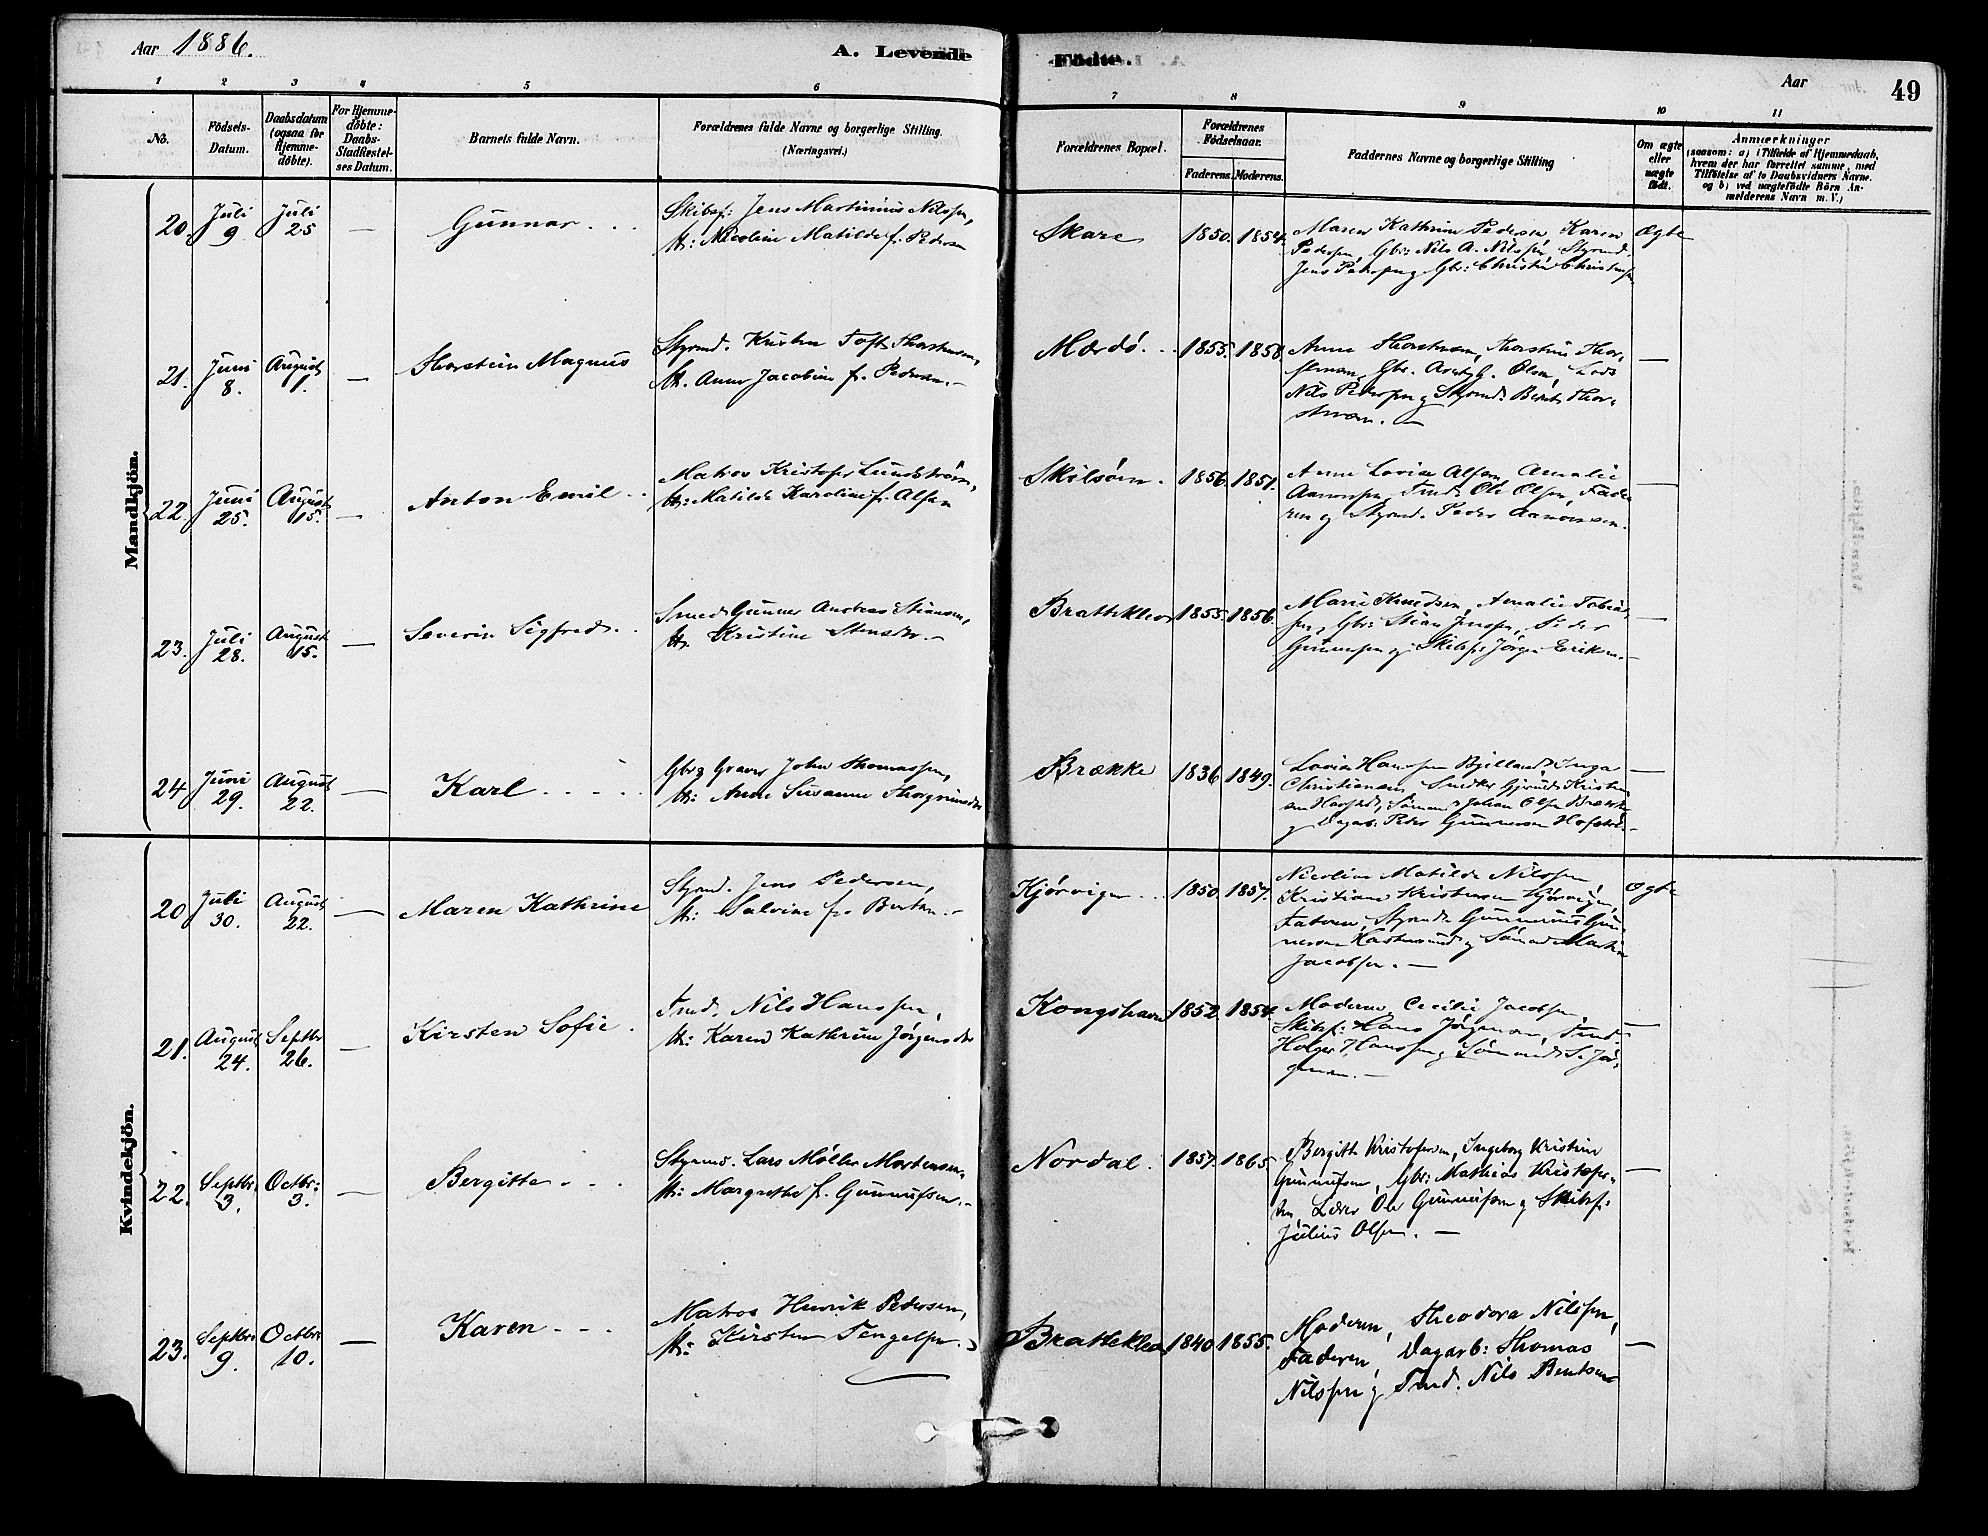 Aar 1886.
A. Levende Födte.
Aar
49
1 2 3 4 5 6 7 8 9 10 11
No.
Födsels-Datum.
Daabsdatum (ogsaa for Hjemme-döbte).
For Hjemme-döbte: Daabs-Stadfæstel-ses Datum.
Barnets fulde Navn.
Forældrenes fulde Navne og borgerlige Stilling. (Næringsvei.)
Forældrenes Bopæl.
Forældrenes Födselsaar.
Faderens. Moderens.
Faddernes Navne og borgerlige Stilling
Om ægte eller uægte födt.
Anmærkninger
(saasom: a) i Tilfælde af Hjemmedaab,
hvem der har forrettet samme, med
Tilföielse af to Daabsvidners Navne.
og b) ved uægtefödte Börn An-
melderens Navn m. V.)
Mandkjön.
20. Juli 9 Juli 25 — Gunnar . . .
Skibsf: Jens Martinius Nilssen,
H: Nicoline Matilde f. Pedersen
Skare 1850. 1854.
Maren Kathrine Pedersen, Karen
Pedersen, Gbr: Nils A. Nilssen, Styrmd.
Jens Pedersen og Gbr: Christen Christensen
Ægte
21. Juni 8. August 1. — Thorstein Magnus
Styrmd. Kristen Toft Thorstensen,
H. Anne Jacobine f. Pedersen. —
Mærdö. . . 1855. 1858.
Anne Thorstensen, Thorstine Thor-
stensen, Gbr. Olsen, Lods
Nils Pedersen og Styrmd. Bernt Thor-
stensen. —
—
22. Juni 25. August 15. — Anton Emil . .
Matros Kristofer Lundström,
H: Matilde Karoline f. Alfsen
Skilsöen. 1856. 1851.
Anne Lovise Alfsen, Amalie
Aanonsen, Tmd. Ole Olsen, Fade-
ren og Styrmd. Peder Aanonsen.
—
23. Juli 28. August 15. — Severin Sigfred. .
Smed Gunner Andreas Stiansen,
H. Kristine Stensdr. —
Brattekleo 1855. 1856.
Marie Knudsen, Amalie Tobias-
sen, Gbr: Stian Jensen,
Gunnersen og Skibsf: Jörgen Eriksen. —
—
24 Juni 29. August 22. — Karl . . . . .
Gbr og Graver John Thomassen,
H: Anne Susanne Thorgrimsdr
Brække 1836 1849.
Lovise Hanssen Bjelland, Inga
Christiansen, Gjerud Kristen-
sen Havsted, Sömand Johan Olsen Brække
og Dagarb. Peter Gunnersen Hofsted. —
—
Kvindekjön.
20 Juli 30. August 22. — Maren Kathrine
Styrmd. Jens Pedersen,
H: Salvine f. Berten. —
Kjörvigen . . 1850. 1857.
Nicoline Matilde Nilssen
Kristiane Kristensen Kjörvigen,
Faderen, Styrmd. Gunnerius Gun-
nersen og Sömand Martin
Jacobsen. —
Ægte
21. August 24. Septbr 26. — Kirsten Sofie .
Tmd. Nils Hanssen,
H: Karen Kathrine Jörgensdr
Kongshavn 1852. 1854.
Moderen, Cecilie Jacobsen,
Skibsf: Hans Jörgensen, Tmd.
Holger Hanssen og Sömand S. Jör-
gensen. —
—
22. Septbr. 3. Octbr: 3. — Bergitte . . .
Styrmd. Lars Møller Mortensen
H: Margrethe f. Gunnufsen. -
Nordal. 1857. 1865.
Bergith Kristofersen, Ingeborg Kristine
Gunnufsen, Gbr: Mathias Kristofer-
sen, Lærer Ole Gunnufsen og Skibsf:
Julius Olsen. —
—
23. Septbr 9. Octbr 10. — Karen . . .
Matros Henrik Pedersen,
H: Kirsten Tengelsen.
Brattekleo 1840 1855.
Moderen, Theodora Nilssen,
Faderen, Dagarb: Thomas
Nilssen og Tmd. Nils Bentsen
—